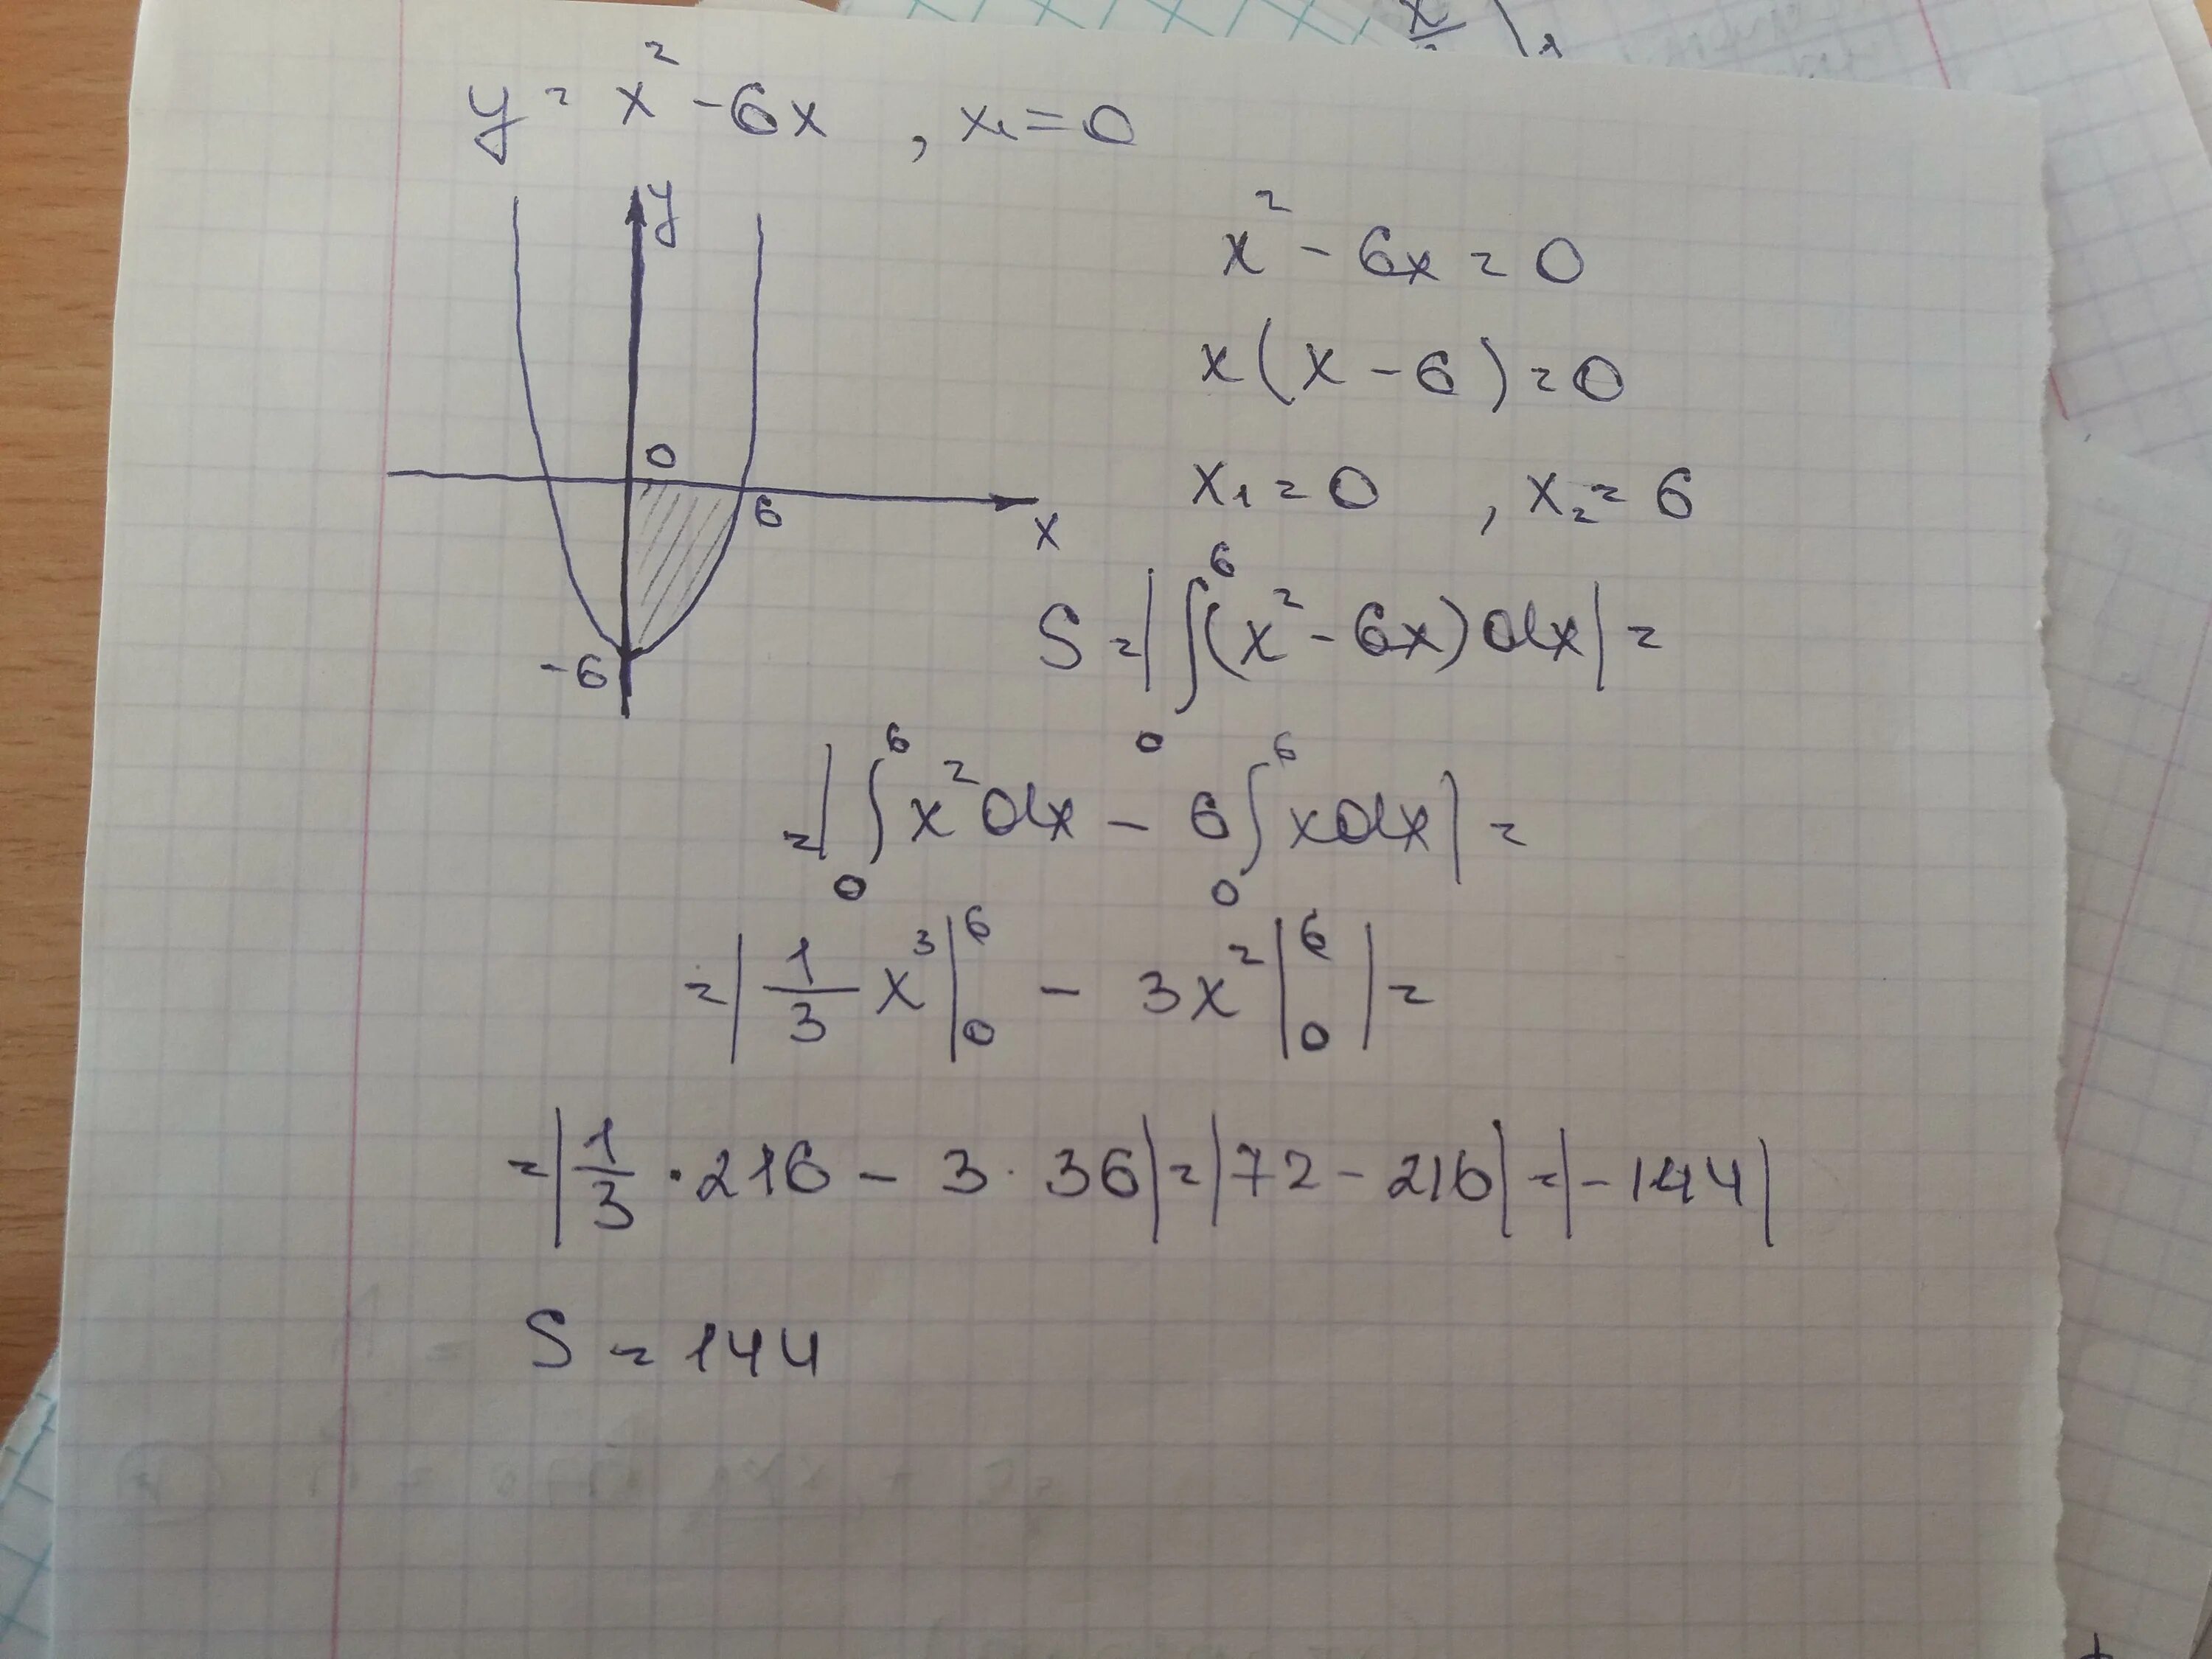 y = x² - 6x , x₁ = 0
y
0
6
x
-6
x² - 6x = 0
x(x - 6) = 0
x₁ = 0 , x₂ = 6
S = |∫₀⁶(x² - 6x)dx| =
= |∫₀⁶ x²dx - 6∫₀⁶ xdx| =
= |1/3 x³|₀⁶ - 3x²|₀⁶| =
= |1/3 · 216 - 3 · 36| = |72 - 216| = |-144|
S = 144